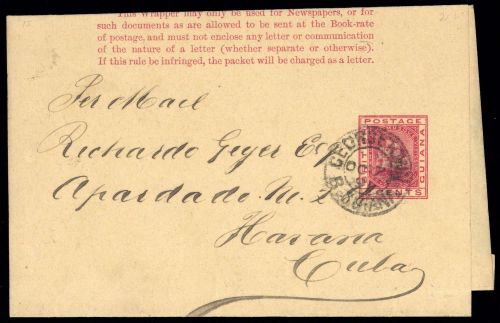 This Wrapper may only be used for Newspapers, or for
such documents as are allowed to be sent at the Book-rate
of postage, and must not enclose any letter or communication
of the nature of a letter (whether separate or otherwise).
If this rule be infringed, the packet will be charged as a letter.
Per Mail
Richardo Geyer Esq
Apardado M. 2
Havana
Cuba
POSTAGE
GUIANA
CENTS